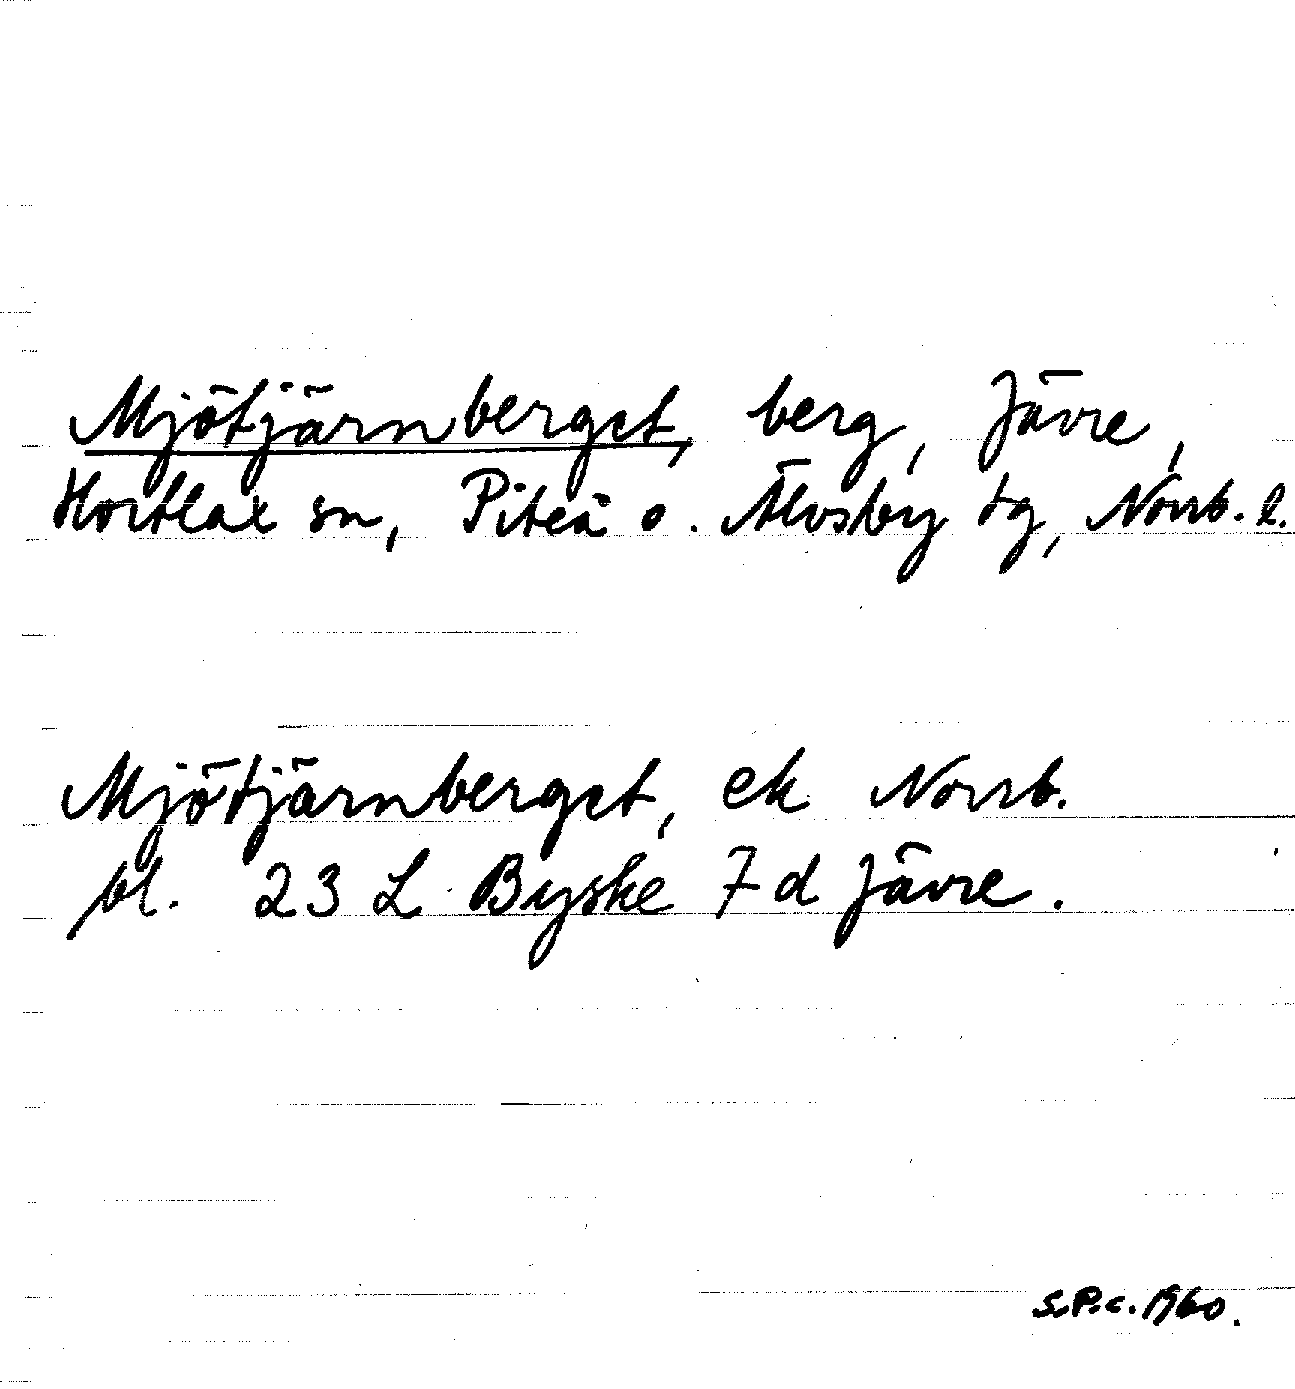 Mjötjärnberget, berg, Jävre,
Hortlax sn, Piteå o. Älvsby tg, Norrb. l.
Mjötjärnberget, ek Norrb.
bl. 23 L Byske 7 d Jävre.
S.P.c. 1960.